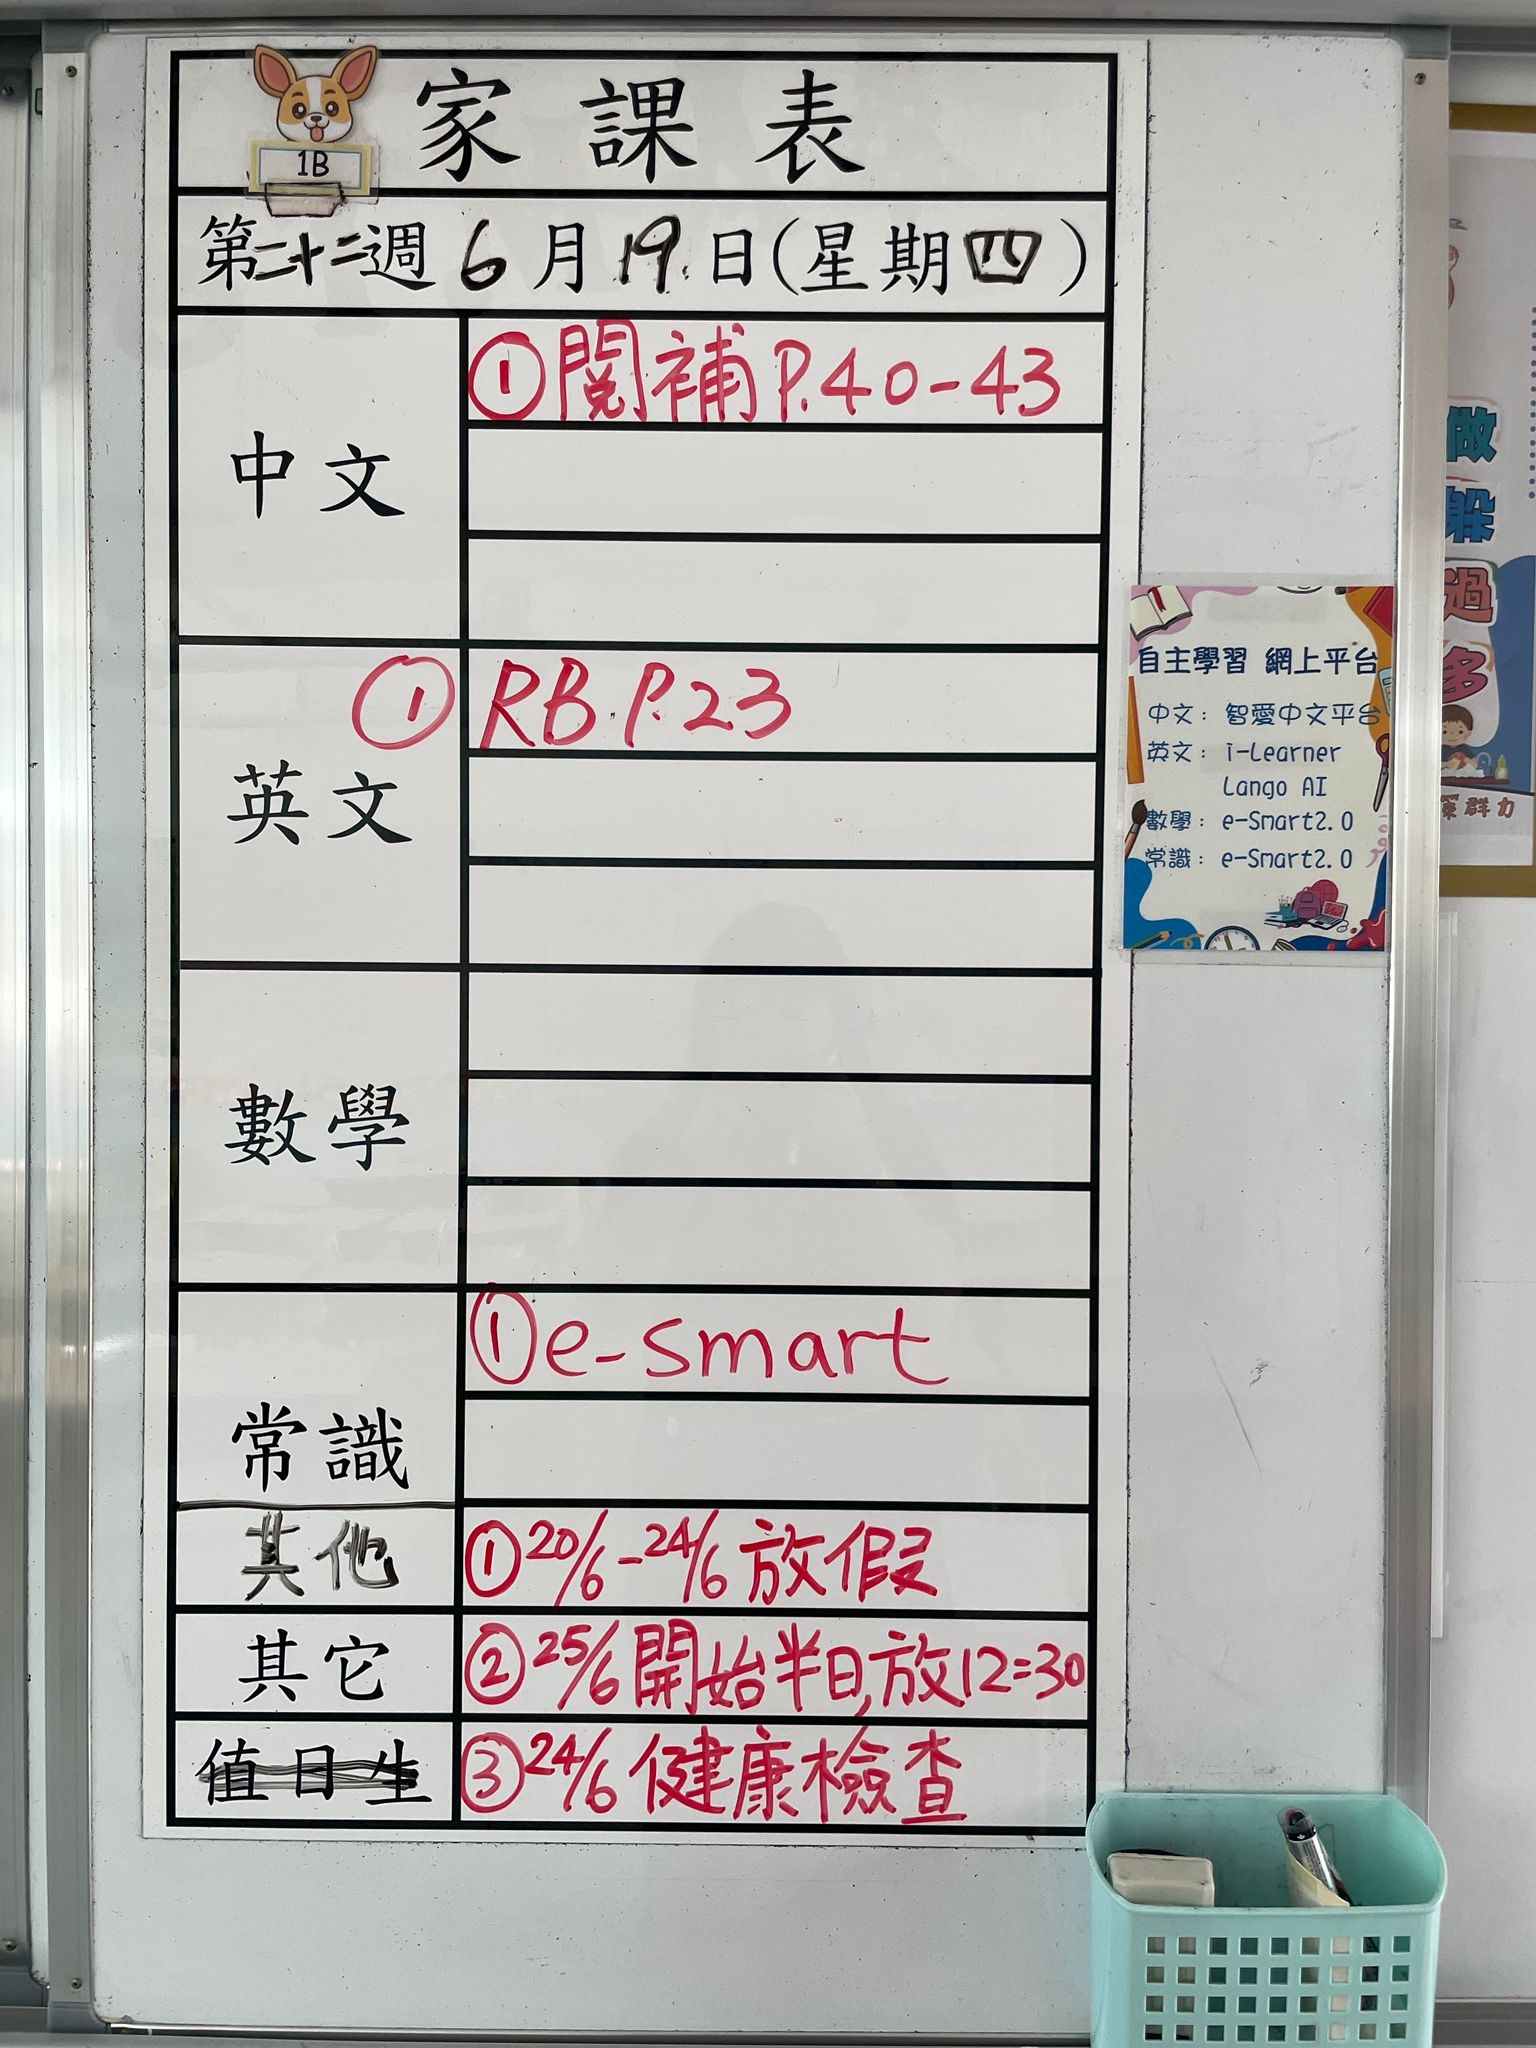 家課表
1B
第二十二週 6月19日(星期四)
中文
①閱補 P.40-43
英文
① RB P.23
數學
常識
①e-smart
其他
①20/6-24/6 放假
其它
②25/6 開始半日,放12:30
值日生
③24/6 健康檢查
自主學習 網上平台
中文：智愛中文平台
英文：i-Learner
Lango AI
數學：e-Smart2.0
常識：e-Smart2.0
做
躲
過
多
群力